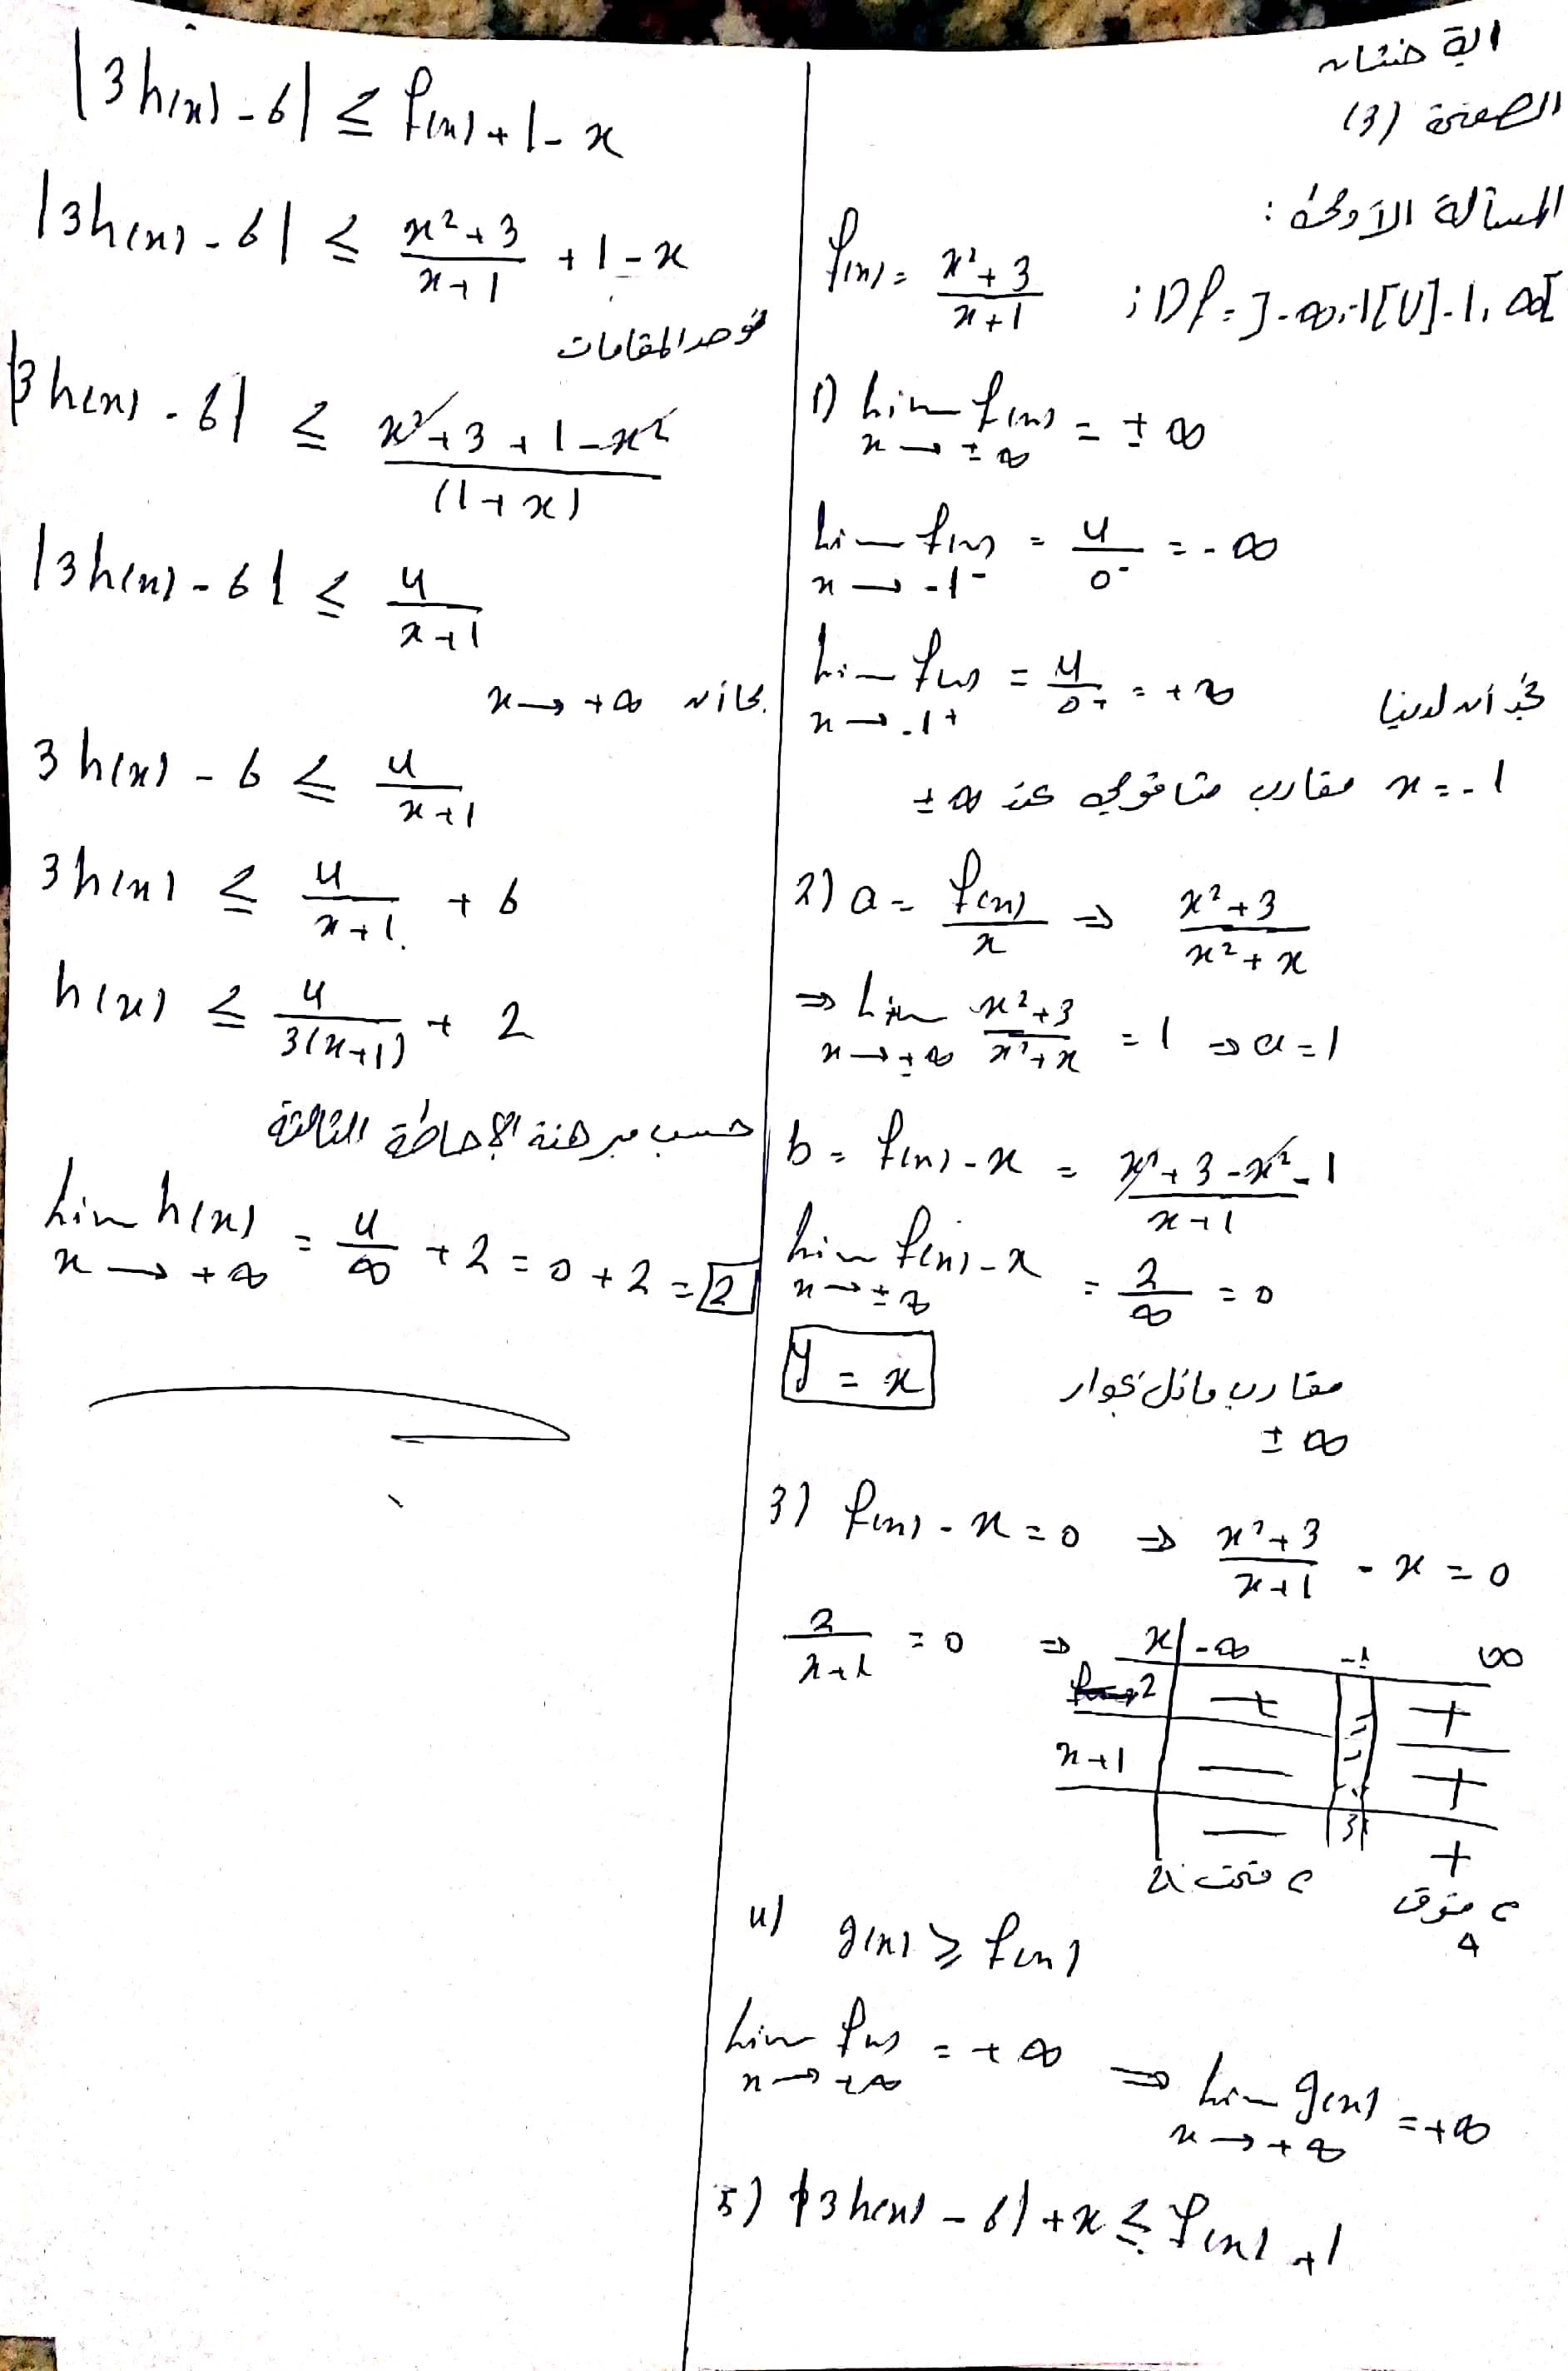 الصفحة (3)
المسألة الأولى :
f(x) = x²+3 / x+1 ; Df = ]-∞,-1[∪]-1,∞[
1) lim f(x) = ±∞
x → ±∞
lim f(x) = 4 / 0⁻ = -∞
x → -1⁻
lim f(x) = 4 / 0⁺ = +∞
x → -1⁺
نجد أن لدينا
x = -1 مقارب شاقولي عند ±∞
2) a = f(x) / x ⇒ x²+3 / x²+x
⇒ lim x²+3 / x²+x = 1 ⇒ a = 1
x → ±∞
b = f(x) - x = x²+3-x²-1 / x+1
lim f(x) - x = 2 / ∞ = 0
x → ±∞
y = x مقارب مائل بجوار
±∞
3) f(x) - x = 0 ⇒ x²+3 / x+1 - x = 0
2 / x+1 = 0 ⇒
x -∞ -1 ∞
2 + +
x+1 - +
- +
c تحت Δ c فوق
Δ
4) g(x) ≥ f(x)
lim f(x) = +∞ ⇒ lim g(x) = +∞
x → +∞ x → +∞
5) |3h(x) - 6| + x ≤ f(x) + 1
|3h(x) - 6| ≤ f(x) + 1 - x
|3h(x) - 6| ≤ x²+3 / x+1 + 1 - x
نوحد المقامات
|3h(x) - 6| ≤ x²+3+1-x² / (1+x)
|3h(x) - 6| ≤ 4 / x+1
بما أن x → +∞
3h(x) - 6 ≤ 4 / x+1
3h(x) ≤ 4 / x+1 + 6
h(x) ≤ 4 / 3(x+1) + 2
حسب مبرهنة الإحاطة الثالثة
lim h(x) = 4 / ∞ + 2 = 0 + 2 = 2
x → +∞